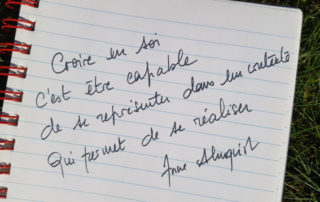 Croire en soi
C'est être capable
de se représenter dans un contexte
Qui permet de se réaliser
Anne